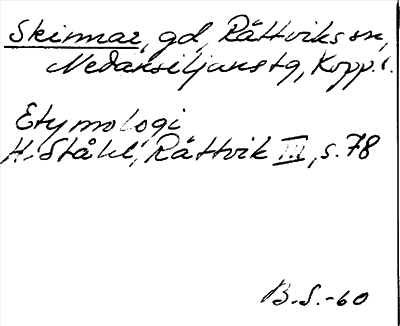 Skinnar, gd, Rättviks sn,
Nedansiljans tg, Kopp. l.
Etymologi
H. Ståhl, Rättvik III, s. 78
B.S.-60